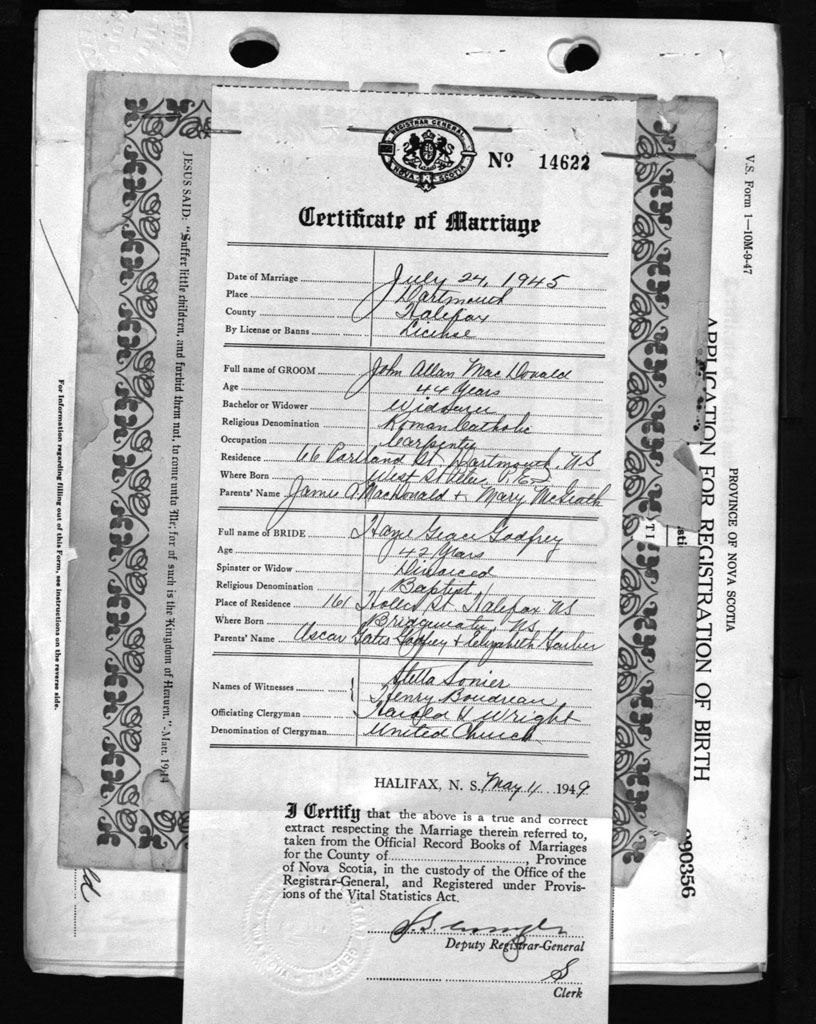 REGISTRAR GENERAL
NOVA SCOTIA
No 14622
Certificate of Marriage
Date of Marriage July 24, 1945
Place Dartmouth
County Halifax
By License or Banns License
Full name of GROOM John Allan MacDonald
Age 44 Years
Bachelor or Widower Widower
Religious Denomination Roman Catholic
Occupation Carpenter
Residence 66 Portland St. Dartmouth, NS
Where Born West St Peters P.E.I.
Parents' Name James A. MacDonald + Mary McGrath
Full name of BRIDE Grace Godfrey
Age 42 Years
Spinster or Widow Divorced
Religious Denomination Baptist
Place of Residence 161 Hollis St. Halifax NS
Where Born Bridgewater, NS
Parents' Name Oscar Gates Godfrey + Elizabeth
Names of Witnesses Stella Sonier
Henry Boudreau
Officiating Clergyman Harold H Wright
Denomination of Clergyman United Church
HALIFAX, N. S. May 11 1949
I Certify that the above is a true and correct
extract respecting the Marriage therein referred to,
taken from the Official Record Books of Marriages
for the County of, Province
of Nova Scotia, in the custody of the Office of the
Registrar-General, and Registered under Provis-
ions of the Vital Statistics Act.
Deputy Registrar-General
S
Clerk
JESUS SAID: "Suffer little children, and forbid them not, to come unto Me; for of such is the Kingdom of Heaven."-Matt. 19:14
For Information regarding filling out of this Form, see instructions on the reverse side.
V.S. Form 1—10M-9-47
PROVINCE OF NOVA SCOTIA
APPLICATION FOR REGISTRATION OF BIRTH
090356